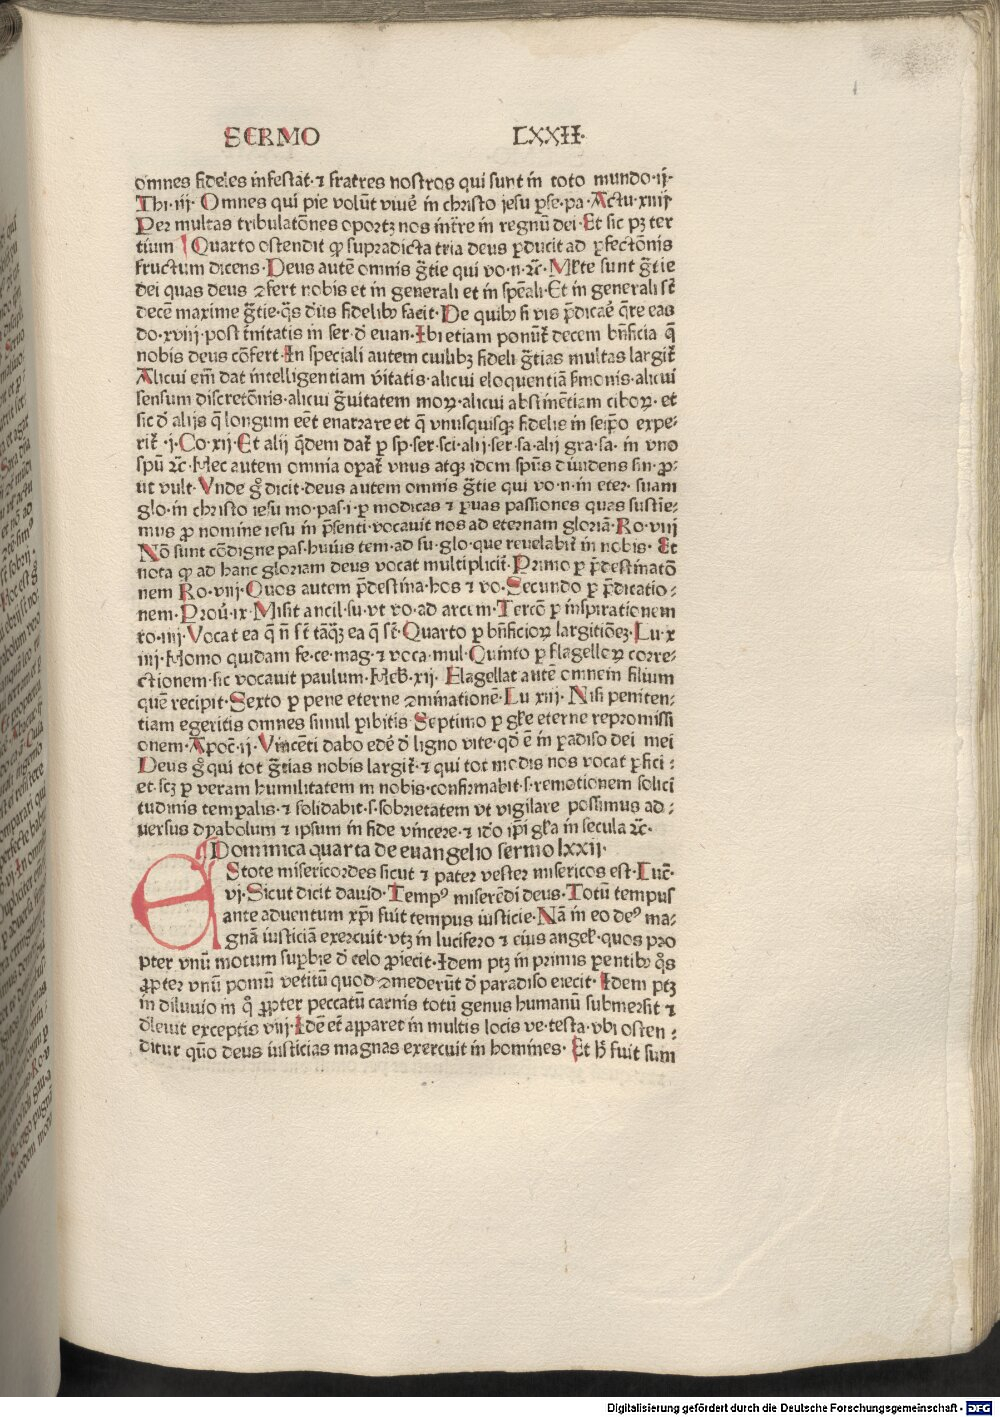 SERMO LXXII·
omnes fideles infestāt· ⁊ fratres nostros qui sunt in toto mundo·ij·
Thi·iij· Omnes qui pie volūt viuē in christo jesu ꝑse·pa·Actu·xiiij
Per multas tribulatōnes oportꝫ nos intr̄e in regnū dei·Et sic pꝫ ter
tium Quarto ostendit ꝙ supradicta tria deus ꝑducit ad ꝑfectōnis
fructum dicens·Deus autē omnis gr̄tie qui vo·n·⁊c̄·Ml̄te sunt gr̄tie
dei quas deus ꝯfert nobis et in generali et in spēali·Et in generali st̄
decē maxime gr̄tie·qs̄ dn̄s fidelibꝫ facit·De quibꝫ si vis p̄dicaē qr̄e eas
do·xviij·post trinitatis in ser·d̄ euan·Ibi etiam ponūt᷑ decem bn̄ficia q̄
nobis deus cōfert·In speciali autem cuilibꝫ fideli gr̄tias multas largit᷑
Alicui em̄ dat intelligentiam v̄itatis·alicui eloquentiā s̄monis·alicui
sensum discretōnis·alicui gr̄uitatem moꝝ·alicui abstinētiam ciboꝝ·et
sic d̄ alijs q̄ longum eēt enarrare et q̄ vnusquisqꝫ fidelis in seip̄o expe-
rit᷑ ·j·Co·xij·Et alij qd̄em dat᷑ ꝑ sp·ser·sci·alij ser·sa·alij gra·sa·in vno
spū ⁊c̄·Hec autem omnia oꝑat᷑ vnus atqꝫ idem spūs diuidens sin·ꝓ-
ut vult·Vnde g̊ dicit·deus autem omnis gr̄tie qui vo·n·in eter·suam
glo·in christo iesu mo·pas·i·ꝑ modicas ⁊ ꝑuas passiones quas sustīe-
mus ꝓ nomine iesu in p̄senti·vocauit nos ad eternam gloriā·Ro·viij
Nō sunt cōdigne pas·huius tem·ad fu·glo·que reuelabit᷑ in nobis· Et
nota ꝙ ad hanc gloriam deus vocat multiplicit᷑·Primo ꝑ p̄destinatō
nem Ro·viij·Quos autem p̄destina·hos ⁊ vo·Secundo ꝑ p̄dicatio-
nem·Prou·ix·Misit ancil·su·vt vo·ad arcem·Tercō ꝑ inspirationem
ro·iiij·Vocat ea q̄ n̄ st̄ tāqꝫ̄ ea q̄ st̄·Quarto ꝑ bn̄ficioꝝ largitiōeꝫ·Lu·x
iiij·Homo quidam fe·ce·mag·⁊ voca·mul·Quinto ꝑ flagelloꝝ corre-
ctionem·sic vocauit paulum·Heb̄·xij· Flagellat autē omnem filium
quē recipit·Sexto ꝑ pene eterne ꝯminationē·Lu xiij· Nisi peniten-
tiam egeritis omnes simul ꝑibitis Septimo ꝑ gl̄e eterne repromissi
onem·Apoc̄·ij·Vincēti dabo edē d̄ ligno vite·qd̄ ē in ꝑadiso dei mei
Deus g̊ qui tot gr̄tias nobis largit᷑·⁊ qui tot modis nos vocat ꝑfici-
et·scꝫ ꝑ veram humilitatem in nobis·confirmabit·s·remotionem solici
tudinis tempalis·⁊ solidabit·s·sobrietatem vt vigilare possimus ad-
uersus dyabolum ⁊ ipsum in fide vincere·⁊ ido ip̄i gl̄a in secula ⁊c̄·
Dominica quarta de euangelio sermo lxxij·
EStote misericordes sicut ⁊ pater vester misericos est·Luc̄·
vj·Sicut dicit dauid·Tempꝰ miserēdi deus·Totū tempus
ante aduentum xp̄i fuit tempus iusticie·Nā in eo deꝰ ma-
gnā iusticiā exercuit·vtꝫ in lucifero ⁊ eius angel̄·quos pro
pter vnū motum suꝑbie d̄ celo ꝓiecit·Idem ptꝫ in primis ꝑentibꝫ qs̄
ꝓpter vnū pomū vetitū quod ꝯmederūt d̄ paradiso eiecit·Idem ptꝫ
in diluuio in q̊ ꝓpter peccatū carnis totū genus humanū submersit ⁊
d̄leuit exceptis viij·Idē et᷑ apparet in multis locis ve·testa·vbi osten-
ditur quō deus iusticias magnas exercuit in homines· Et h̄ fuit sum
Digitalisierung gefördert durch die Deutsche Forschungsgemeinschaft - DFG